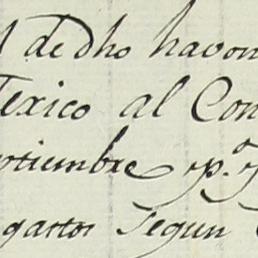 l de dho havon
Texico al Con
eptiembre pº. 7
gastos segun C